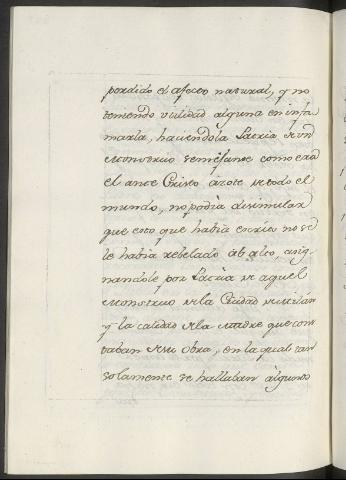 perdido el afecto natural, y no
teniendo vtilidad alguna en infa
marla, haciendola Patria de un
Monstruo semejante como era
el ante Cristo azote de todo el
mundo, no podia disimular
que esto que habia escrito no se
le habia rebelado ab alto, asig
nandole por Patria de aquel
Monstruo de la Ciudad de Milán
y la calidad de la Madre que con
taban de su obra, en la qual tan
solamente se hallaban algunos